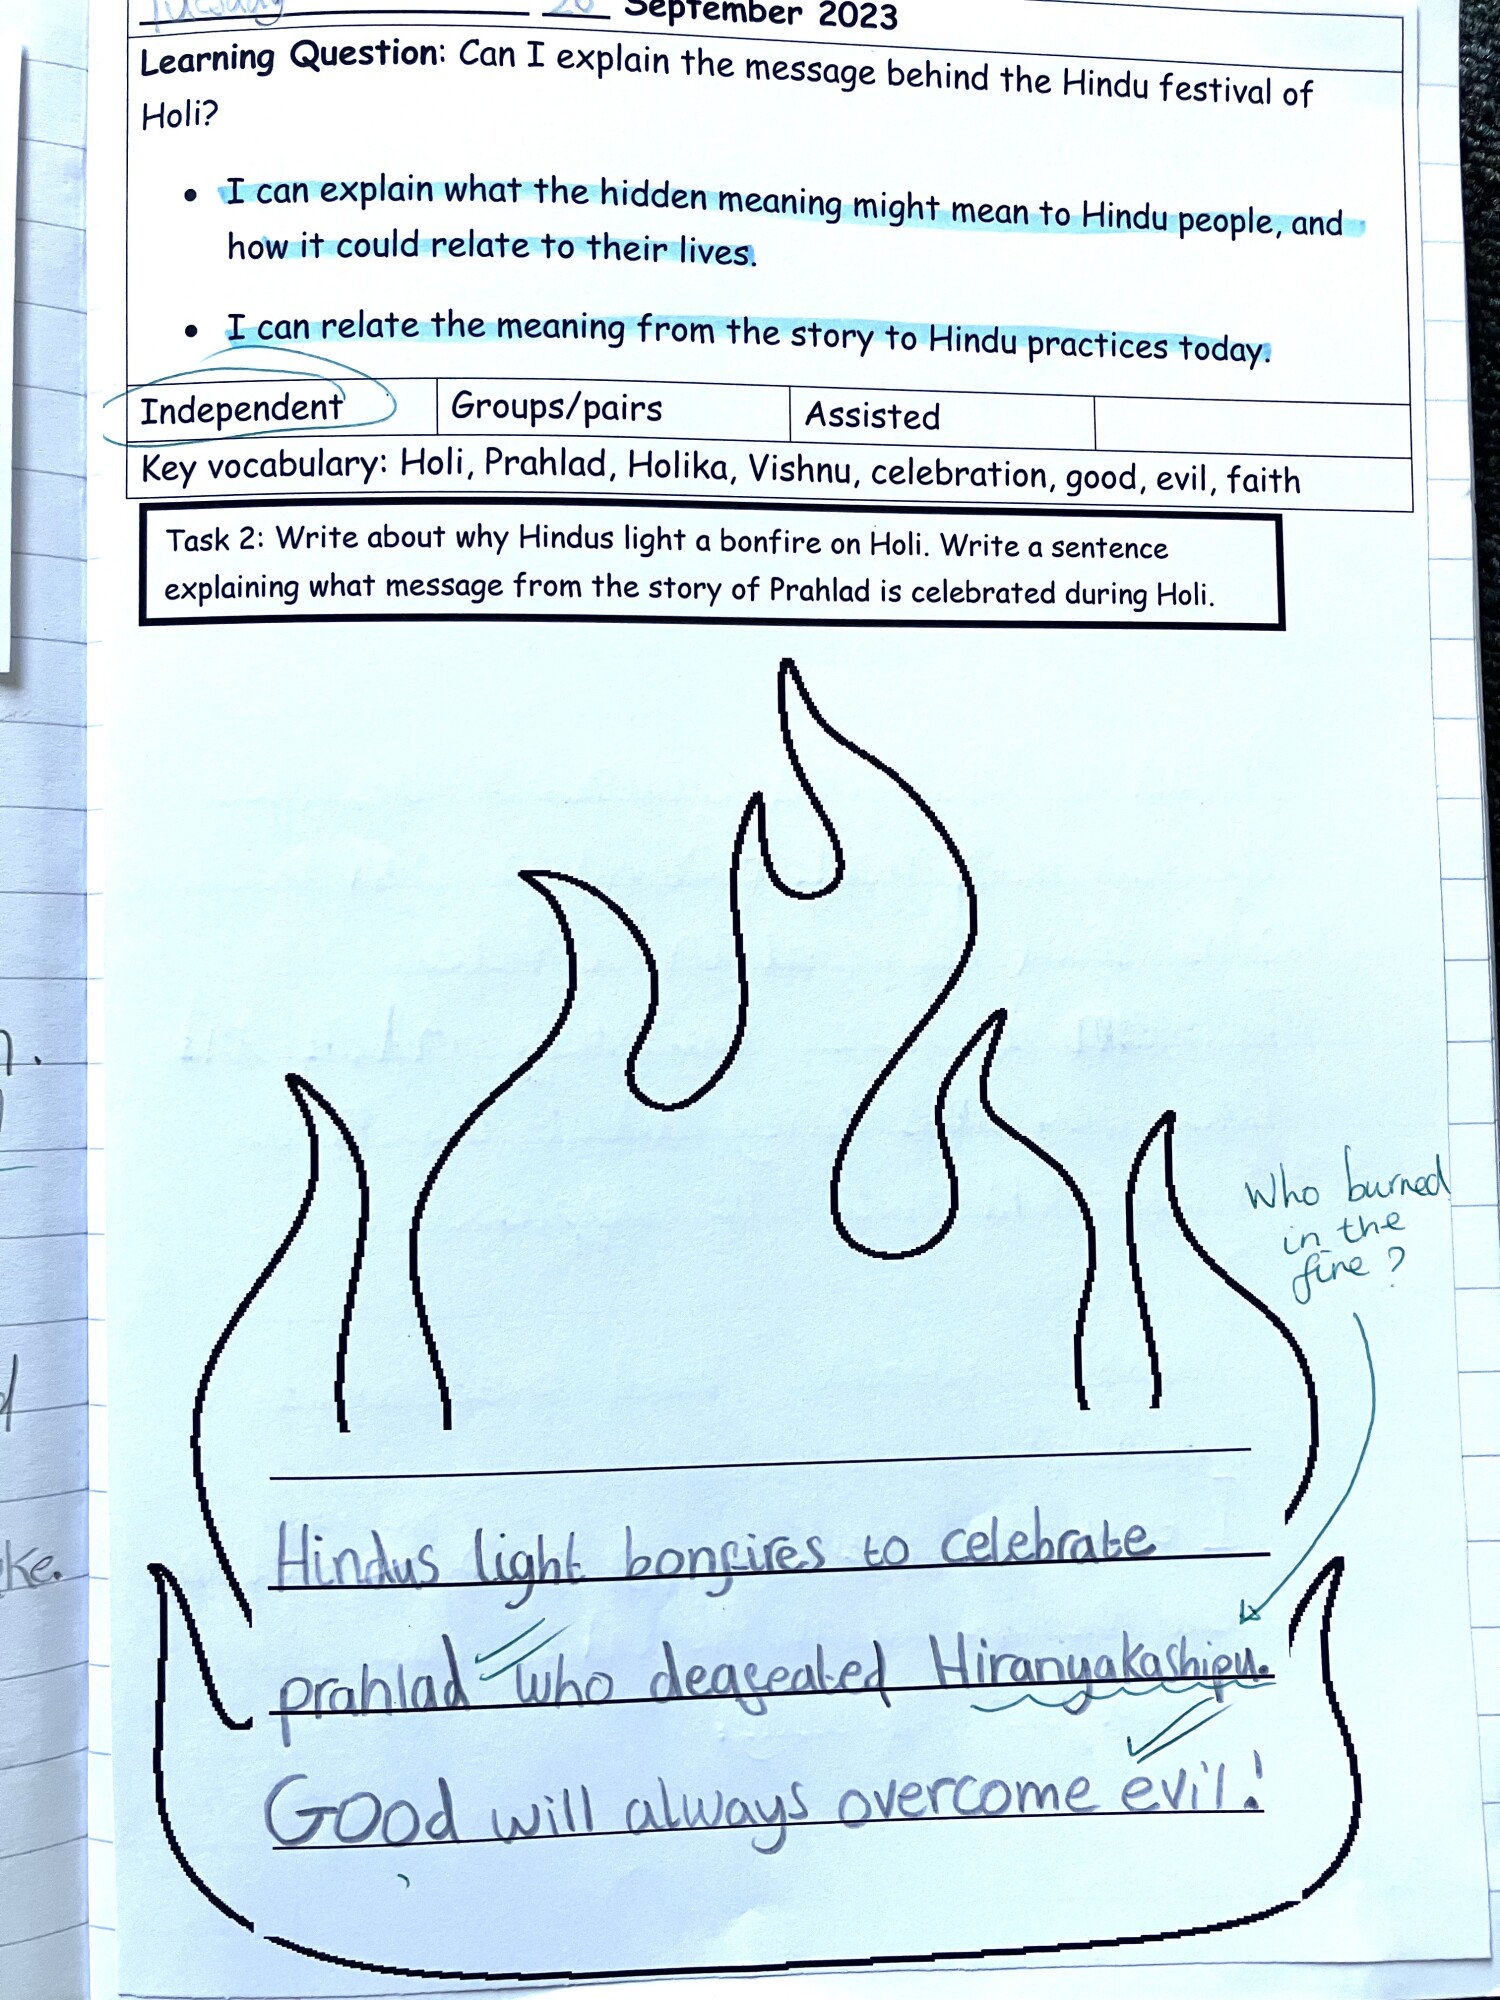 Tuesday 26 September 2023
Learning Question: Can I explain the message behind the Hindu festival of
Holi?
• I can explain what the hidden meaning might mean to Hindu people, and
how it could relate to their lives.
• I can relate the meaning from the story to Hindu practices today.
Independent Groups/pairs Assisted
Key vocabulary: Holi, Prahlad, Holika, Vishnu, celebration, good, evil, faith
Task 2: Write about why Hindus light a bonfire on Holi. Write a sentence
explaining what message from the story of Prahlad is celebrated during Holi.
Who burned
in the
fire?
Hindus light bonfires to celebrate
prahlad who defeated Hiranyakashipu.
Good will always overcome evil!
n.
ke.